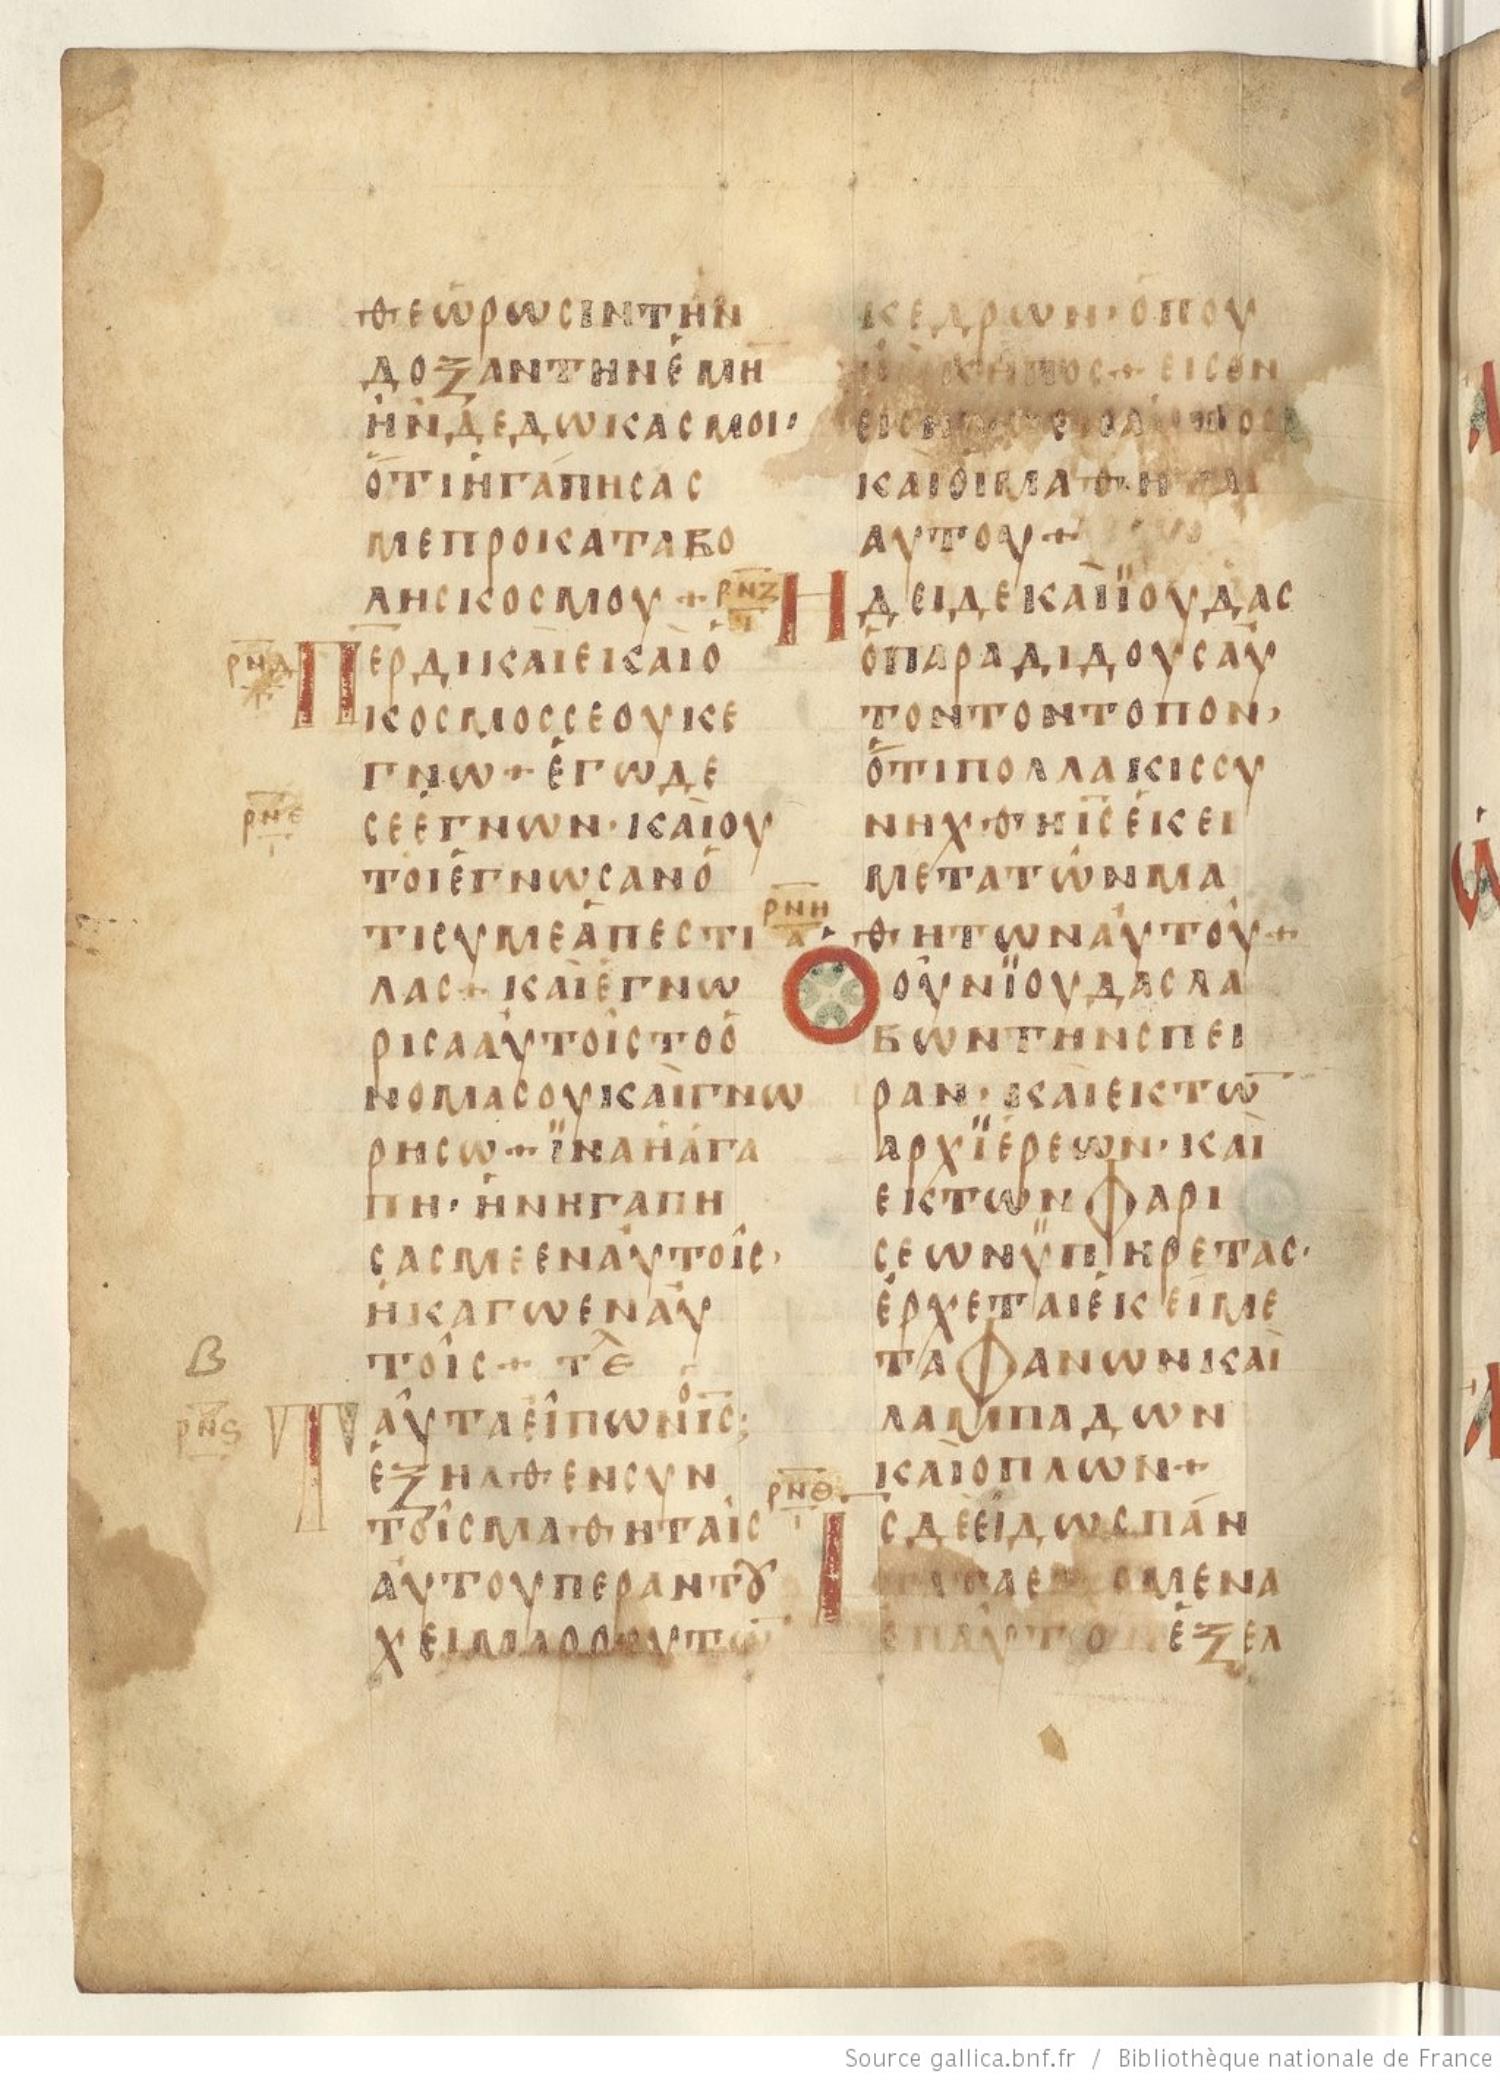 ΘΕΩΡΩΣΙΝΤΗΝ
ΔΟΞΑΝΤΗΝΕΜΗ̅
ΗΝΔΕΔΩΚΑΣΜΟΙ·
ΟΤΙΗΓΑΠΗΣΑΣ
ΜΕΠΡΟΚΑΤΑΒΟ
ΛΗΣΚΟΣΜΟΥ+
ΡΝΔ
ΠΕΡΔΙΚΑΙΕΙΚΑΙΟ
ΚΟΣΜΟΣΣΕΟΥΚΕ
ΓΝΩ+ΕΓΩΔΕ
ΡΝΕ
Ι
ΣΕΕΓΝΩΝ·ΚΑΙΟΥ
ΤΟΙΕΓΝΩΣΑΝΟ
ΤΙΣΥΜΕΑΠΕΣΤΙ
ΛΑΣ+ΚΑΙΕΓΝΩ
ΡΙΣΑΑΥΤΟΙΣΤΟΟ
ΝΟΜΑΣΟΥΚΑΙΓΝΩ
ΡΗΣΩ+ΪΝΑΗΑΓΑ
ΠΗ·ΗΝΗΓΑΠΗ
ΣΑΣΜΕΕΝΑΥΤΟΙΣ,
ΗΚΑΓΩΕΝΑΥ
ΤΟΙΣ+ΤΕ
Β
ΡΝϚ
ΤΑΥΤΑΕΙΠΩΝΟΙ̅Σ̅;
ΕΞΗΛΘΕΝΣΥΝ
ΤΟΙΣΜΑΘΗΤΑΙΣ
ΑΥΤΟΥΠΕΡΑΝΤȢ
ΧΕΙΜΑΡΟΡΟΥΤΩ̅
ΚΕΔΡΩΝ·ΟΠΟΥ
ΚΗΠΟΣ+ΕΙΣΟΝ
ΚΑΙΟΙΜΑΘΗΤΑΙ
ΑΥΤΟΥ+
ΡΝΖ
Ι
ΗΔΕΙΔΕΚΑΙΪΟΥΔΑΣ
ΟΠΑΡΑΔΙΔΟΥΣΑΥ
ΤΟΝΤΟΝΤΟΠΟΝ,
ΟΤΙΠΟΛΛΑΚΙΣΣΥ
ΝΗΧΘΗΙ̅Σ̅ΕΚΕΙ
ΜΕΤΑΤΩΝΜΑ
ΡΝΗ
Α
ΘΗΤΩΝΑΥΤΟΥ+
ΟΟΥΝΪΟΥΔΑΣΛΑ
ΒΩΝΤΗΝΣΠΕΙ
ΡΑΝ·ΚΑΙΕΚΤΩ̅
ΑΡΧΪΕΡΕΩΝ·ΚΑΙ
ΕΚΤΩΝΦΑΡΙ
ΣΕΩΝΫΠΗΡΕΤΑΣ·
ΕΡΧΕΤΑΙΕΚΕΙΜΕ
ΤΑΦΑΝΩΝΚΑΙ
ΛΑΜΠΑΔΩΝ
ΚΑΙΟΠΛΩΝ+
ΡΝΘ
Ι
ΙΣΔΕΕΙΔΩΣΠΑΝ
ΟΜΕΝΑ
ΕΠΑΥΤΟΝ ΕΞΕΛ
Source gallica.bnf.fr / Bibliothèque nationale de France